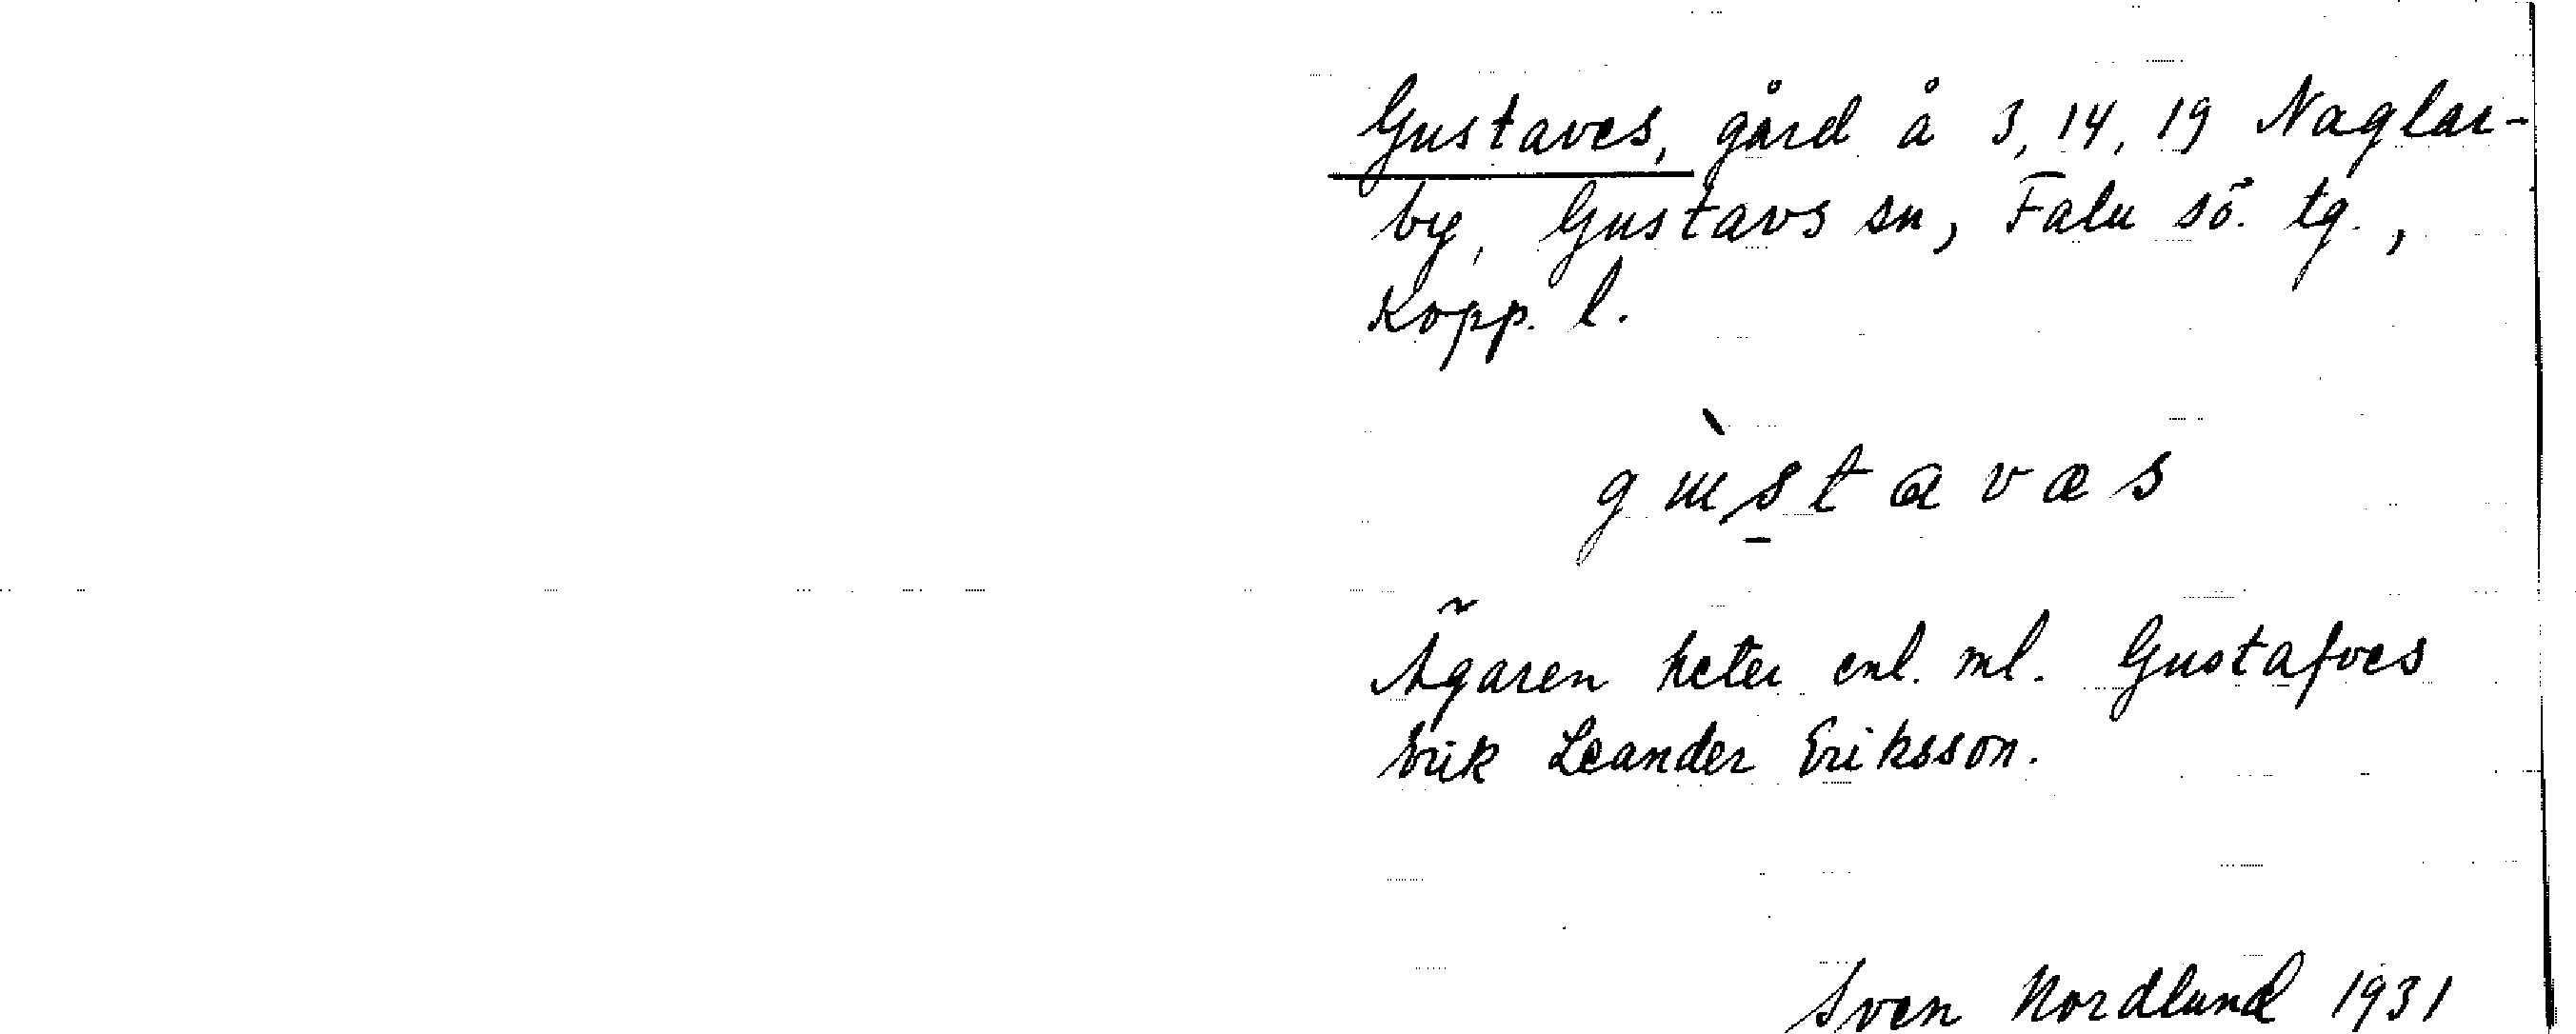 Gustaves, gård å 3, 14, 19 Naglar-
by, Gustavs sn, Falu sö. tg.,
Kopp. l.
Ägaren heter enl. ml. Gustafves
Erik Leander Eriksson.
Sven Nordlund 1931